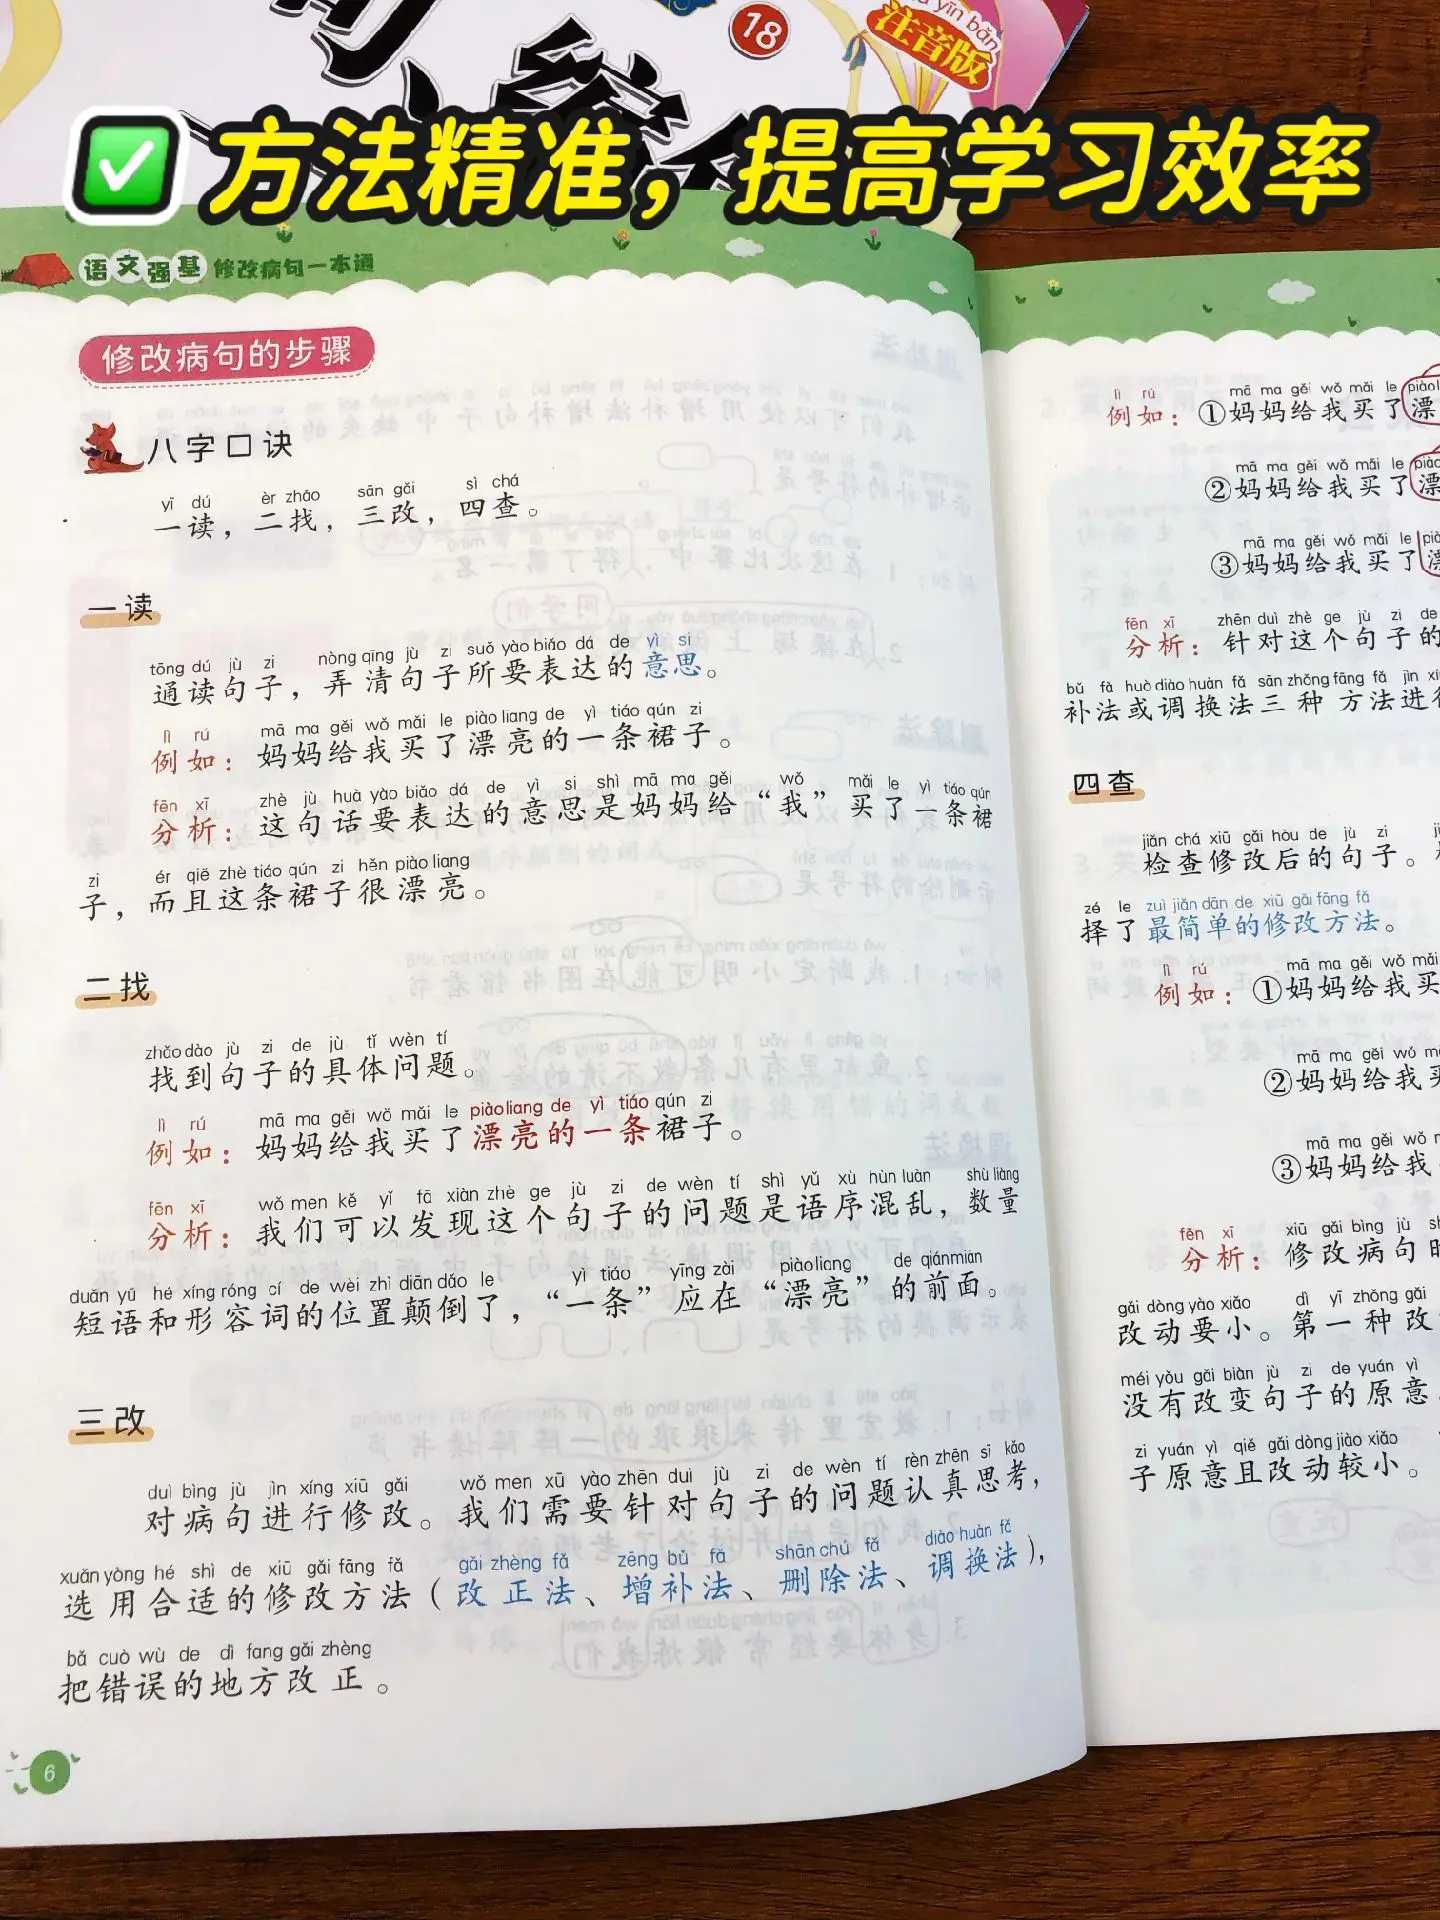 18
注音版
方法精准，提高学习效率
语文强基 修改病句一本通
修改病句的步骤
八字口诀
yī dú èr zhǎo sān gǎi sì chá
一读，二找，三改，四查。
一读
tōng dú jù zi nòng qīng jù zi suǒ yào biǎo dá de yì si
通读句子，弄清句子所要表达的意思。
lì rú mā ma gěi wǒ mǎi le piào liang de yì tiáo qún zi
例如：妈妈给我买了漂亮的一条裙子。
fēn xī zhè jù huà yào biǎo dá de yì si shì mā ma gěi wǒ mǎi le yì tiáo qún
分析：这句话要表达的意思是妈妈给“我”买了一条裙
zi ér qiě zhè tiáo qún zi hěn piào liang
子，而且这条裙子很漂亮。
二找
zhǎo dào jù zi de jù tǐ wèn tí
找到句子的具体问题。
lì rú mā ma gěi wǒ mǎi le piào liang de yì tiáo qún zi
例如：妈妈给我买了漂亮的一条裙子。
fēn xī wǒ men kě yǐ fā xiàn zhè ge jù zi de wèn tí shì yǔ xù hùn luàn shù liàng
分析：我们可以发现这个句子的问题是语序混乱，数量
duǎn yǔ hé xíng róng cí de wèi zhì diān dǎo le yì tiáo yīng zài piào liang de qián miàn
短语和形容词的位置颠倒了，“一条”应在“漂亮”的前面。
三改
duì bìng jù jìn xíng xiū gǎi wǒ men xū yào zhēn duì jù zi de wèn tí rèn zhēn sī kǎo
对病句进行修改。我们需要针对句子的问题认真思考，
xuǎn yòng hé shì de xiū gǎi fāng fǎ gǎi zhèng fǎ zēng bǔ fǎ shān chú fǎ diào huàn fǎ
选用合适的修改方法（改正法、增补法、删除法、调换法），
bǎ cuò wù de dì fang gǎi zhèng
把错误的地方改正。
6
lì rú mā ma gěi wǒ mǎi le
例如：①妈妈给我买了漂
mā ma gěi wǒ mǎi le
②妈妈给我买了漂
mā ma gěi wǒ mǎi le
③妈妈给我买了漂
fēn xī zhēn duì zhè ge jù zi de
分析：针对这个句子的
bǔ fǎ huò diào huàn fǎ sān zhǒng fāng fǎ jìn
补法或调换法三种方法进行
四查
jiǎn chá xiū gǎi hòu de jù zi
检查修改后的句子。
zé le zuì jiǎn dān de xiū gǎi fāng fǎ
择了最简单的修改方法。
lì rú mā ma gěi wǒ mǎi
例如：①妈妈给我买
mā ma gěi wǒ
②妈妈给我买
mā ma gěi wǒ
③妈妈给我
fēn xī xiū gǎi bìng jù
分析：修改病句时
gǎi dòng yào xiǎo dì yī zhǒng gǎi
改动要小。第一种改
méi yǒu gǎi biàn jù zi de yuán yì
没有改变句子的原意
zi yuán yì qiě gǎi dòng jiào xiǎo
子原意且改动较小。